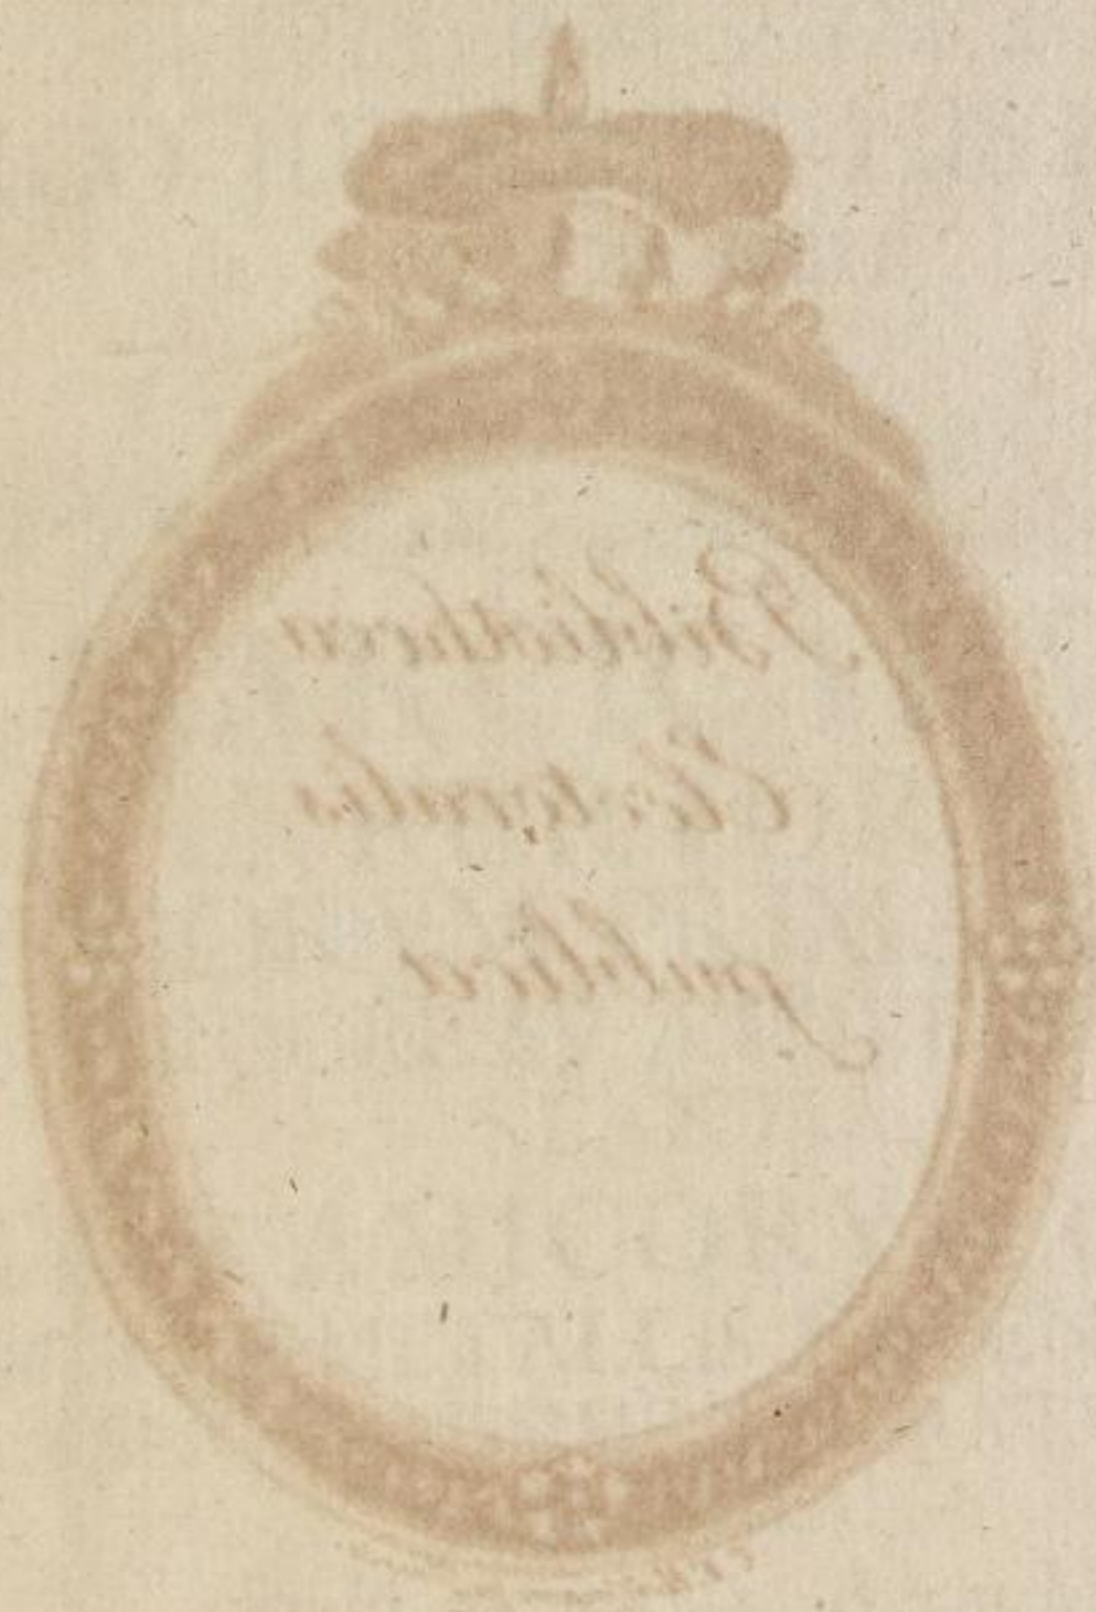 Bibliotheca
Electoralis
publica